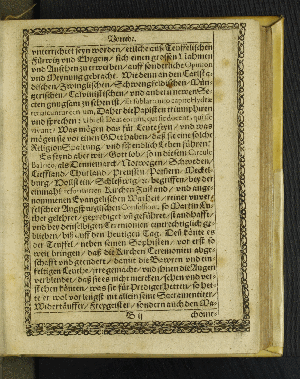 Vorrede.
vnterrichtet seyn worden / etliche auß Teuffelischen
Fürwitz vnd Ehrgeitz / sich einen grossen Nahmen
vnd Ansehen zu erwerben / auff sonderliche Opinion
vnd Meynung gebracht. Wie denn an den Carlst
dischen / Zwinglischen / Schwenckfeldischen / Mün
tzerischen / Calvinistischen / vnd andern newen Se
cten gnugsam zu sehen ist /
Daher die Papisten triumphiren
vnd sprechen:
Was mögen das für Leute seyn / vnd was
mögen sie vor einen GOtt haben / daß sie eine solche
Religion Spaltung / vnd schendlich Leben führen?
Es seynd aber wir / Gott lob / in diesem Circulo
Balthico, als Dennemarck / Norwegen / Schweden /
Lieffland / Churland / Preussen / Pommern / Meckel
burg / Holstein / Schleswig / bey der
einmahl reformirten Kirchen Zustand / vnd ange
nommenen Evangelischen Warheit / reiner vnver
felschter Augspurgischen Confession, so Martin Lu
ther gelehret / geprediget vnd geführet / standhafft /
vnd bey denselbigen Ceremonien
blieben / biß auff den heutigen Tag. Deß könte es
der Teuffel / neben seinen Sophisten / vor erst so
weit bringen / daß die Kirchen Ceremonien abge
schafft vnd geendert / damit die Bawren vnd ein
feltigen Leuthe / irregemacht / vnd ihnen die Augen
verblendet / daß sie es nicht mercken / sehen vnd ver
stehen könten / was sie für Prediger hetten / so het
te er wol vor längst mit allein seine Sacramentirer /
Widertäuffer / Freygeister / sondern auch den Ma
B ij
home-